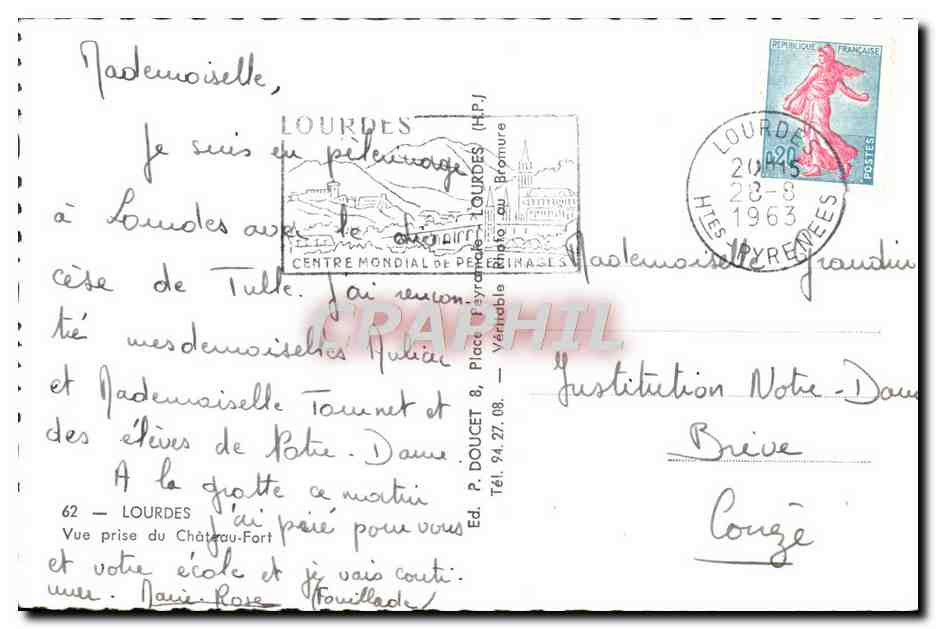 Mademoiselle,
Je suis en pèlerinage
à Lourdes avec le dio
cèse de Tulle. J'ai rencon-
tré mesdemoiselles
et Mademoiselle et
des élèves de Notre-Dame.
A la grotte ce matin
j'ai prié pour vous
et votre école et je vais conti-
nuer. Marie-Rose (Fouillade)
62 — LOURDES
Vue prise du Château-Fort
LOURDES
CENTRE MONDIAL DE PELERINAGES
Ed. P. DOUCET 8, Place Peyramale - LOURDES (H.P.)
Tél. 94.27.08. — Véritable Photo au Bromure
REPUBLIQUE FRANÇAISE
0,20
POSTES
LOURDES
20H15
28-8
1963
HTES PYRENEES
Mademoiselle Grandin
Institution Notre-Dam
Brive
Corrèze
CPAPHIL